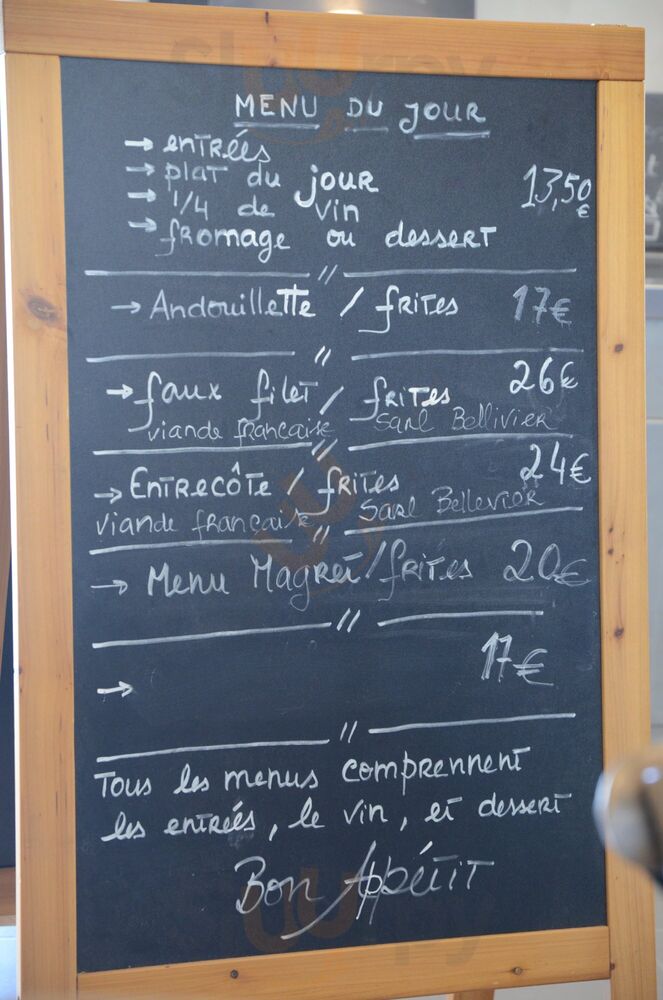 MENU DU JOUR
→ entrées
→ plat du jour 13,50 €
→ 1/4 de vin
→ fromage ou dessert
//
→ Andouillette / frites 17€
//
→ faux filet / frites 26€
viande française Sarl Bellivier
//
→ ENTRECÔTE / frites 24€
viande française Sarl Bellevier
//
→ Menu Magret / frites 20€
//
→ 17€
//
Tous les menus comprennent
les entrées, le vin, et dessert
Bon Appétit